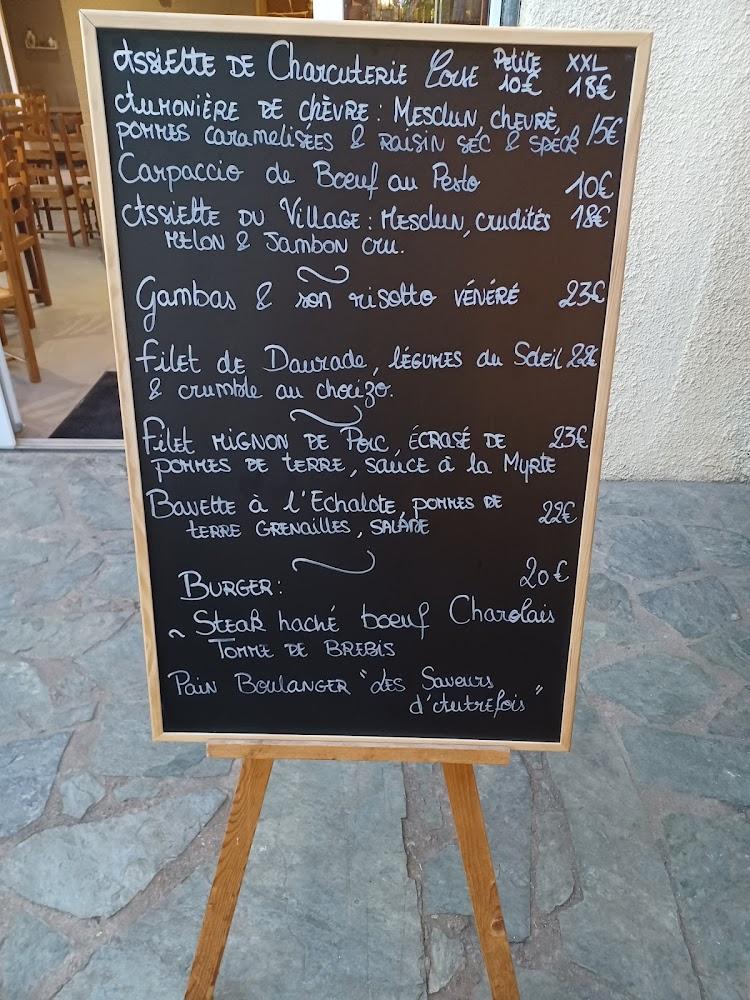 Assiette de Charcuterie Corse Petite XXL
10€ 18€
Aumonière de chèvre : Mesclun, chèvre,
pommes caramelisées & raisin sec & speck 15€
Carpaccio de Boeuf au Pesto 10€
Assiette du Village : Mesclun, crudités 18€
Melon & Jambon cru.
Gambas & son risotto vénéré 23€
Filet de Daurade, légumes du Soleil 22€
& crumble au chorizo.
Filet mignon de Porc, écrasé de 23€
pommes de terre, sauce à la Myrte
Bavette à l'Echalote, pommes de
terre grenailles, salade 22€
Burger : 20€
~ Steak haché boeuf Charolais
Tomme de Brebis
Pain Boulanger "des Saveurs
d'Autrefois"